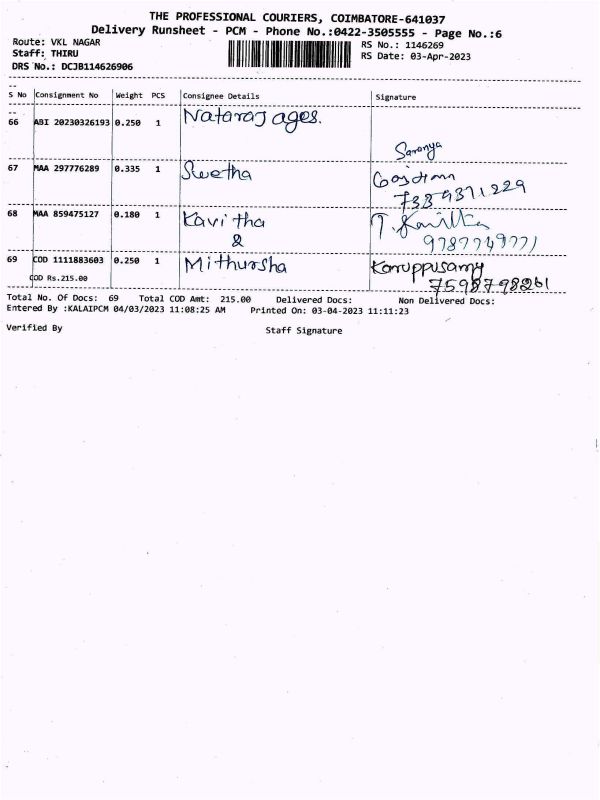 THE PROFESSIONAL COURIERS, COIMBATORE-641037
Delivery Runsheet - PCM - Phone No.:0422-3505555 - Page No.:6
Route: VKL NAGAR
Staff: THIRU
DRS No.: DCJB114626906
RS No.: 1146269
RS Date: 03-Apr-2023
S No Consignment No Weight PCS Consignee Details Signature
66 ABI 20230326193 0.250 1 Nataraj ages.
Saranya
67 MAA 297776289 0.335 1 Swetha
7339371229
68 MAA 859475127 0.180 1 Kavitha T. Kavitha
& 9787749771
69 COD 1111883603 0.250 1 Mithursha Karuppusamy
COD Rs.215.00 7598798261
Total No. Of Docs: 69 Total COD Amt: 215.00 Delivered Docs: Non Delivered Docs:
Entered By :KALAIPCM 04/03/2023 11:08:25 AM Printed On: 03-04-2023 11:11:23
Verified By Staff Signature